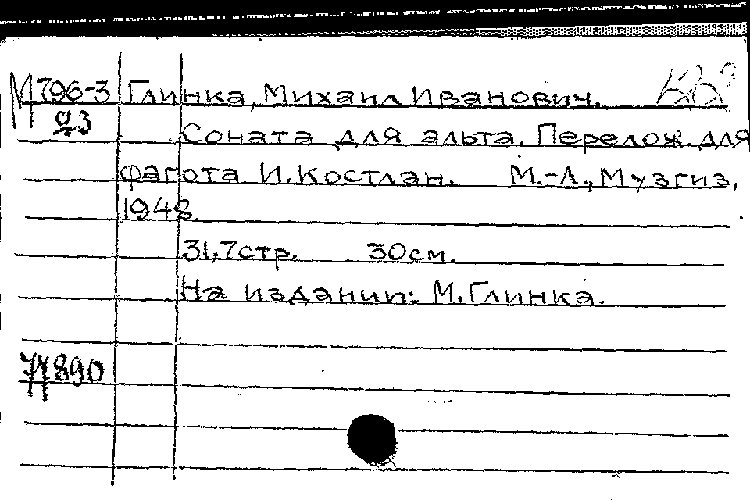 М 796-3 Глинка, Михаил Иванович.
93 Соната для альта. Перелож. для
фагота И. Костлан. М.-Л., Музгиз,
1948.
31,7 стр. 30 см.
На издании: М. Глинка.